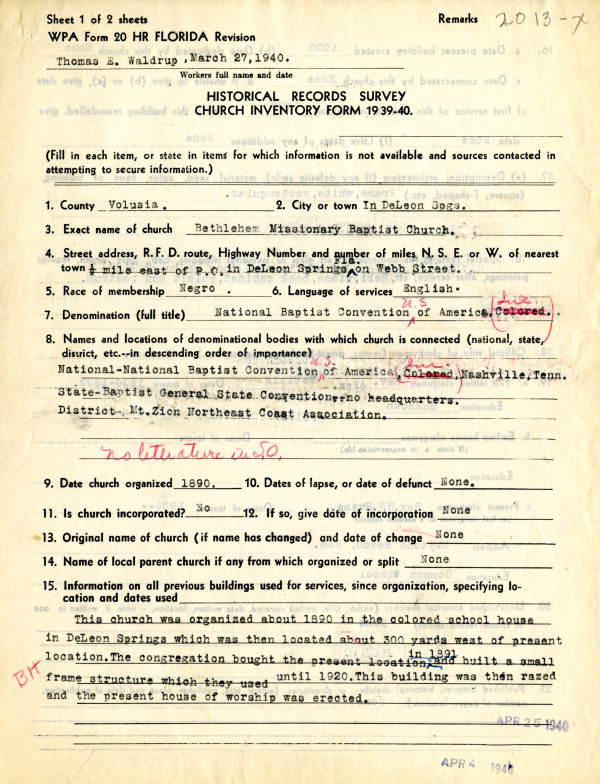 Sheet 1 of 2 sheets
Remarks 2013-X
WPA Form 20 HR FLORIDA Revision
Thomas E. Waldrup, March 27, 1940.
Workers full name and date
HISTORICAL RECORDS SURVEY
CHURCH INVENTORY FORM 1939-40.
(Fill in each item, or state in items for which information is not available and sources contacted in
attempting to secure information.)
1. County Volusia. 2. City or town In DeLeon Spgs.
3. Exact name of church Bethlehem Missionary Baptist Church.
4. Street address, R. F. D. route, Highway Number and number of miles N. S. E. or W. of nearest
town ¼ mile east of P.O. in DeLeon Springs Fla. on Webb Street.
5. Race of membership Negro. 6. Language of services English.
7. Denomination (full title) National Baptist Convention U.S. of America, Colored. Inc.
8. Names and locations of denominational bodies with which church is connected (national, state,
district, etc.--in descending order of importance)
National-National Baptist Convention U.S. of America, Colored, Inc. Nashville, Tenn.
State-Baptist General State Convention--no headquarters.
District- Mt.Zion Northeast Coast Association.
no literature in S.O.
9. Date church organized 1890. 10. Dates of lapse, or date of defunct None.
11. Is church incorporated? No 12. If so, give date of incorporation None
13. Original name of church (if name has changed) and date of change None
14. Name of local parent church if any from which organized or split None
15. Information on all previous buildings used for services, since organization, specifying lo-
cation and dates used
This church was organized about 1890 in the colored school house
in DeLeon Springs which was then located about 300 yards west of present
location. The congregation bought the present location in 1891 and built a small
BH
frame structure which they used until 1920. This building was then razed
and the present house of worship was erected.
APR 25 1940
APR 4 1940